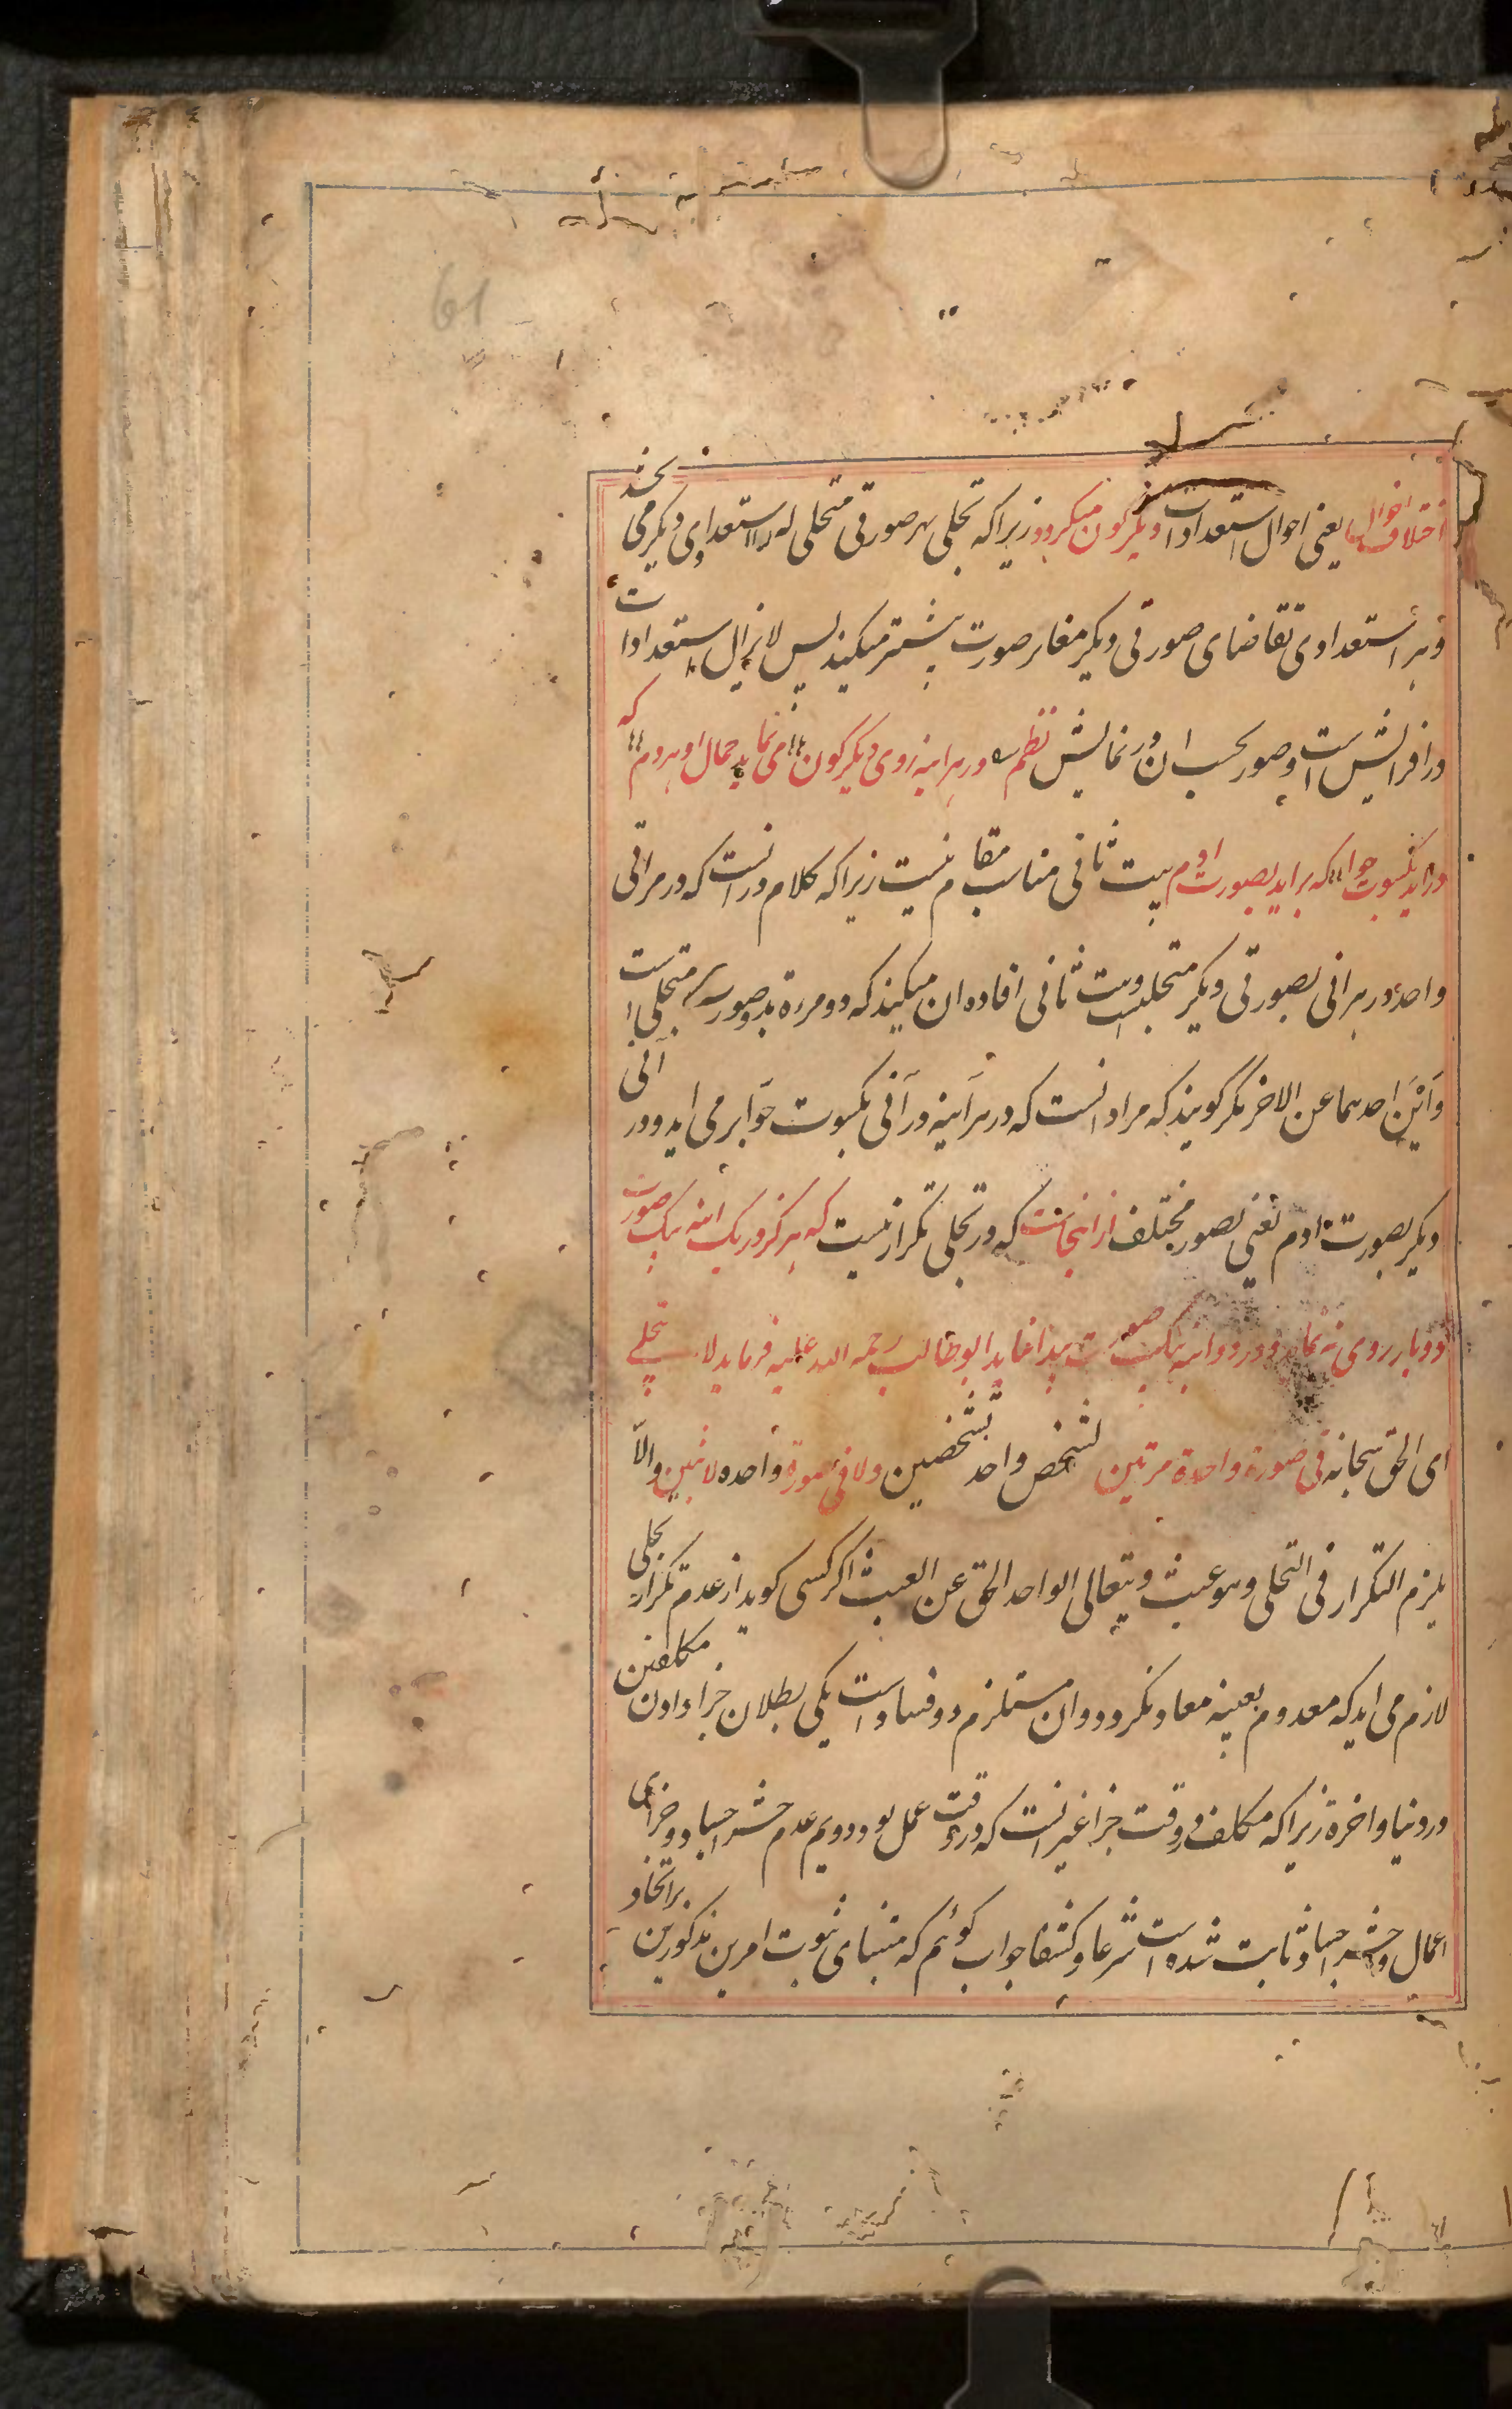 61
اختلاف احوال یعنی احوال استعدادات دیگرگون میگردد زیرا که تجلی بهر صورتی متجلی له را استعدادی دیگر می بخشد
و هر استعدادی تقاضای صورتی دیگر مغایر صورت پیشتر میکند پس لایزال استعدادات
در افزایش است و صور بحسب آن در نمایش نظم در هر آینه روی دیگرگون می نماید جمال او هر دم که
در آید بکسوت حوا که برآید بصورت آدم بیت ثانی مناسب مقام نیست زیرا که کلام در آنست که در مراتی
واحد در هر آنی بصورتی دیگر متجلیست و بیت ثانی افاده آن میکند که دو مرة بدو صورت متجلی است
و این احدهما عن الاخر مگر گویند که مراد آنست که در هر آینه در آنی بکسوت حوا بر می آید و در آنی
دیگر بصورت آدم یعنی بصور مختلف از اینجاست که در تجلی تکرار نیست که هرگز در یک آینه بیک صورت
دو بار روی ننماید و در دو آینه بیک صورت پیدا نماید ابوطالب رحمه الله علیه فرماید لا یتجلی
ای الحق سبحانه فی صورة واحدة مرتین لشخص واحد لشخصین ولا فی صورة واحده لاثنین والا
یلزم التکرار فی التجلی وهو عبث ویتعالی الواحد الحق عن العبث اگر کسی گوید از عدم تکرار تجلی
لازم می آید که معدوم بعینه معاد نگردد و آن مستلزم دو فساد است یکی بطلان جزا دادن مکلفین
در دنیا و آخرة زیرا که مکلف در وقت جزا غیر آنست که در وقت عمل بود و دویم عدم حشر اجساد و جزای
اعمال و حشر اجساد ثابت شده است شرعا و کشفا جواب گوئیم که مبنای ثبوت امرین مذکورین بر اتحاد